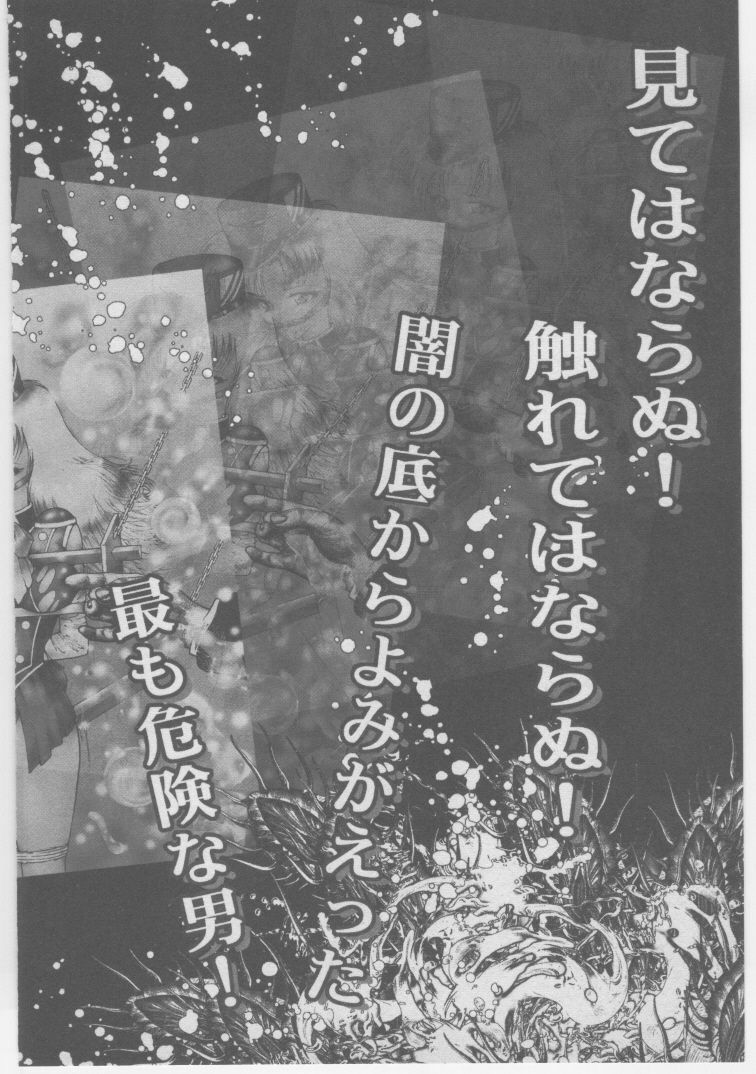 見てはならぬ！
触れてはならぬ！
闇の底からよみがえった
最も危険な男！